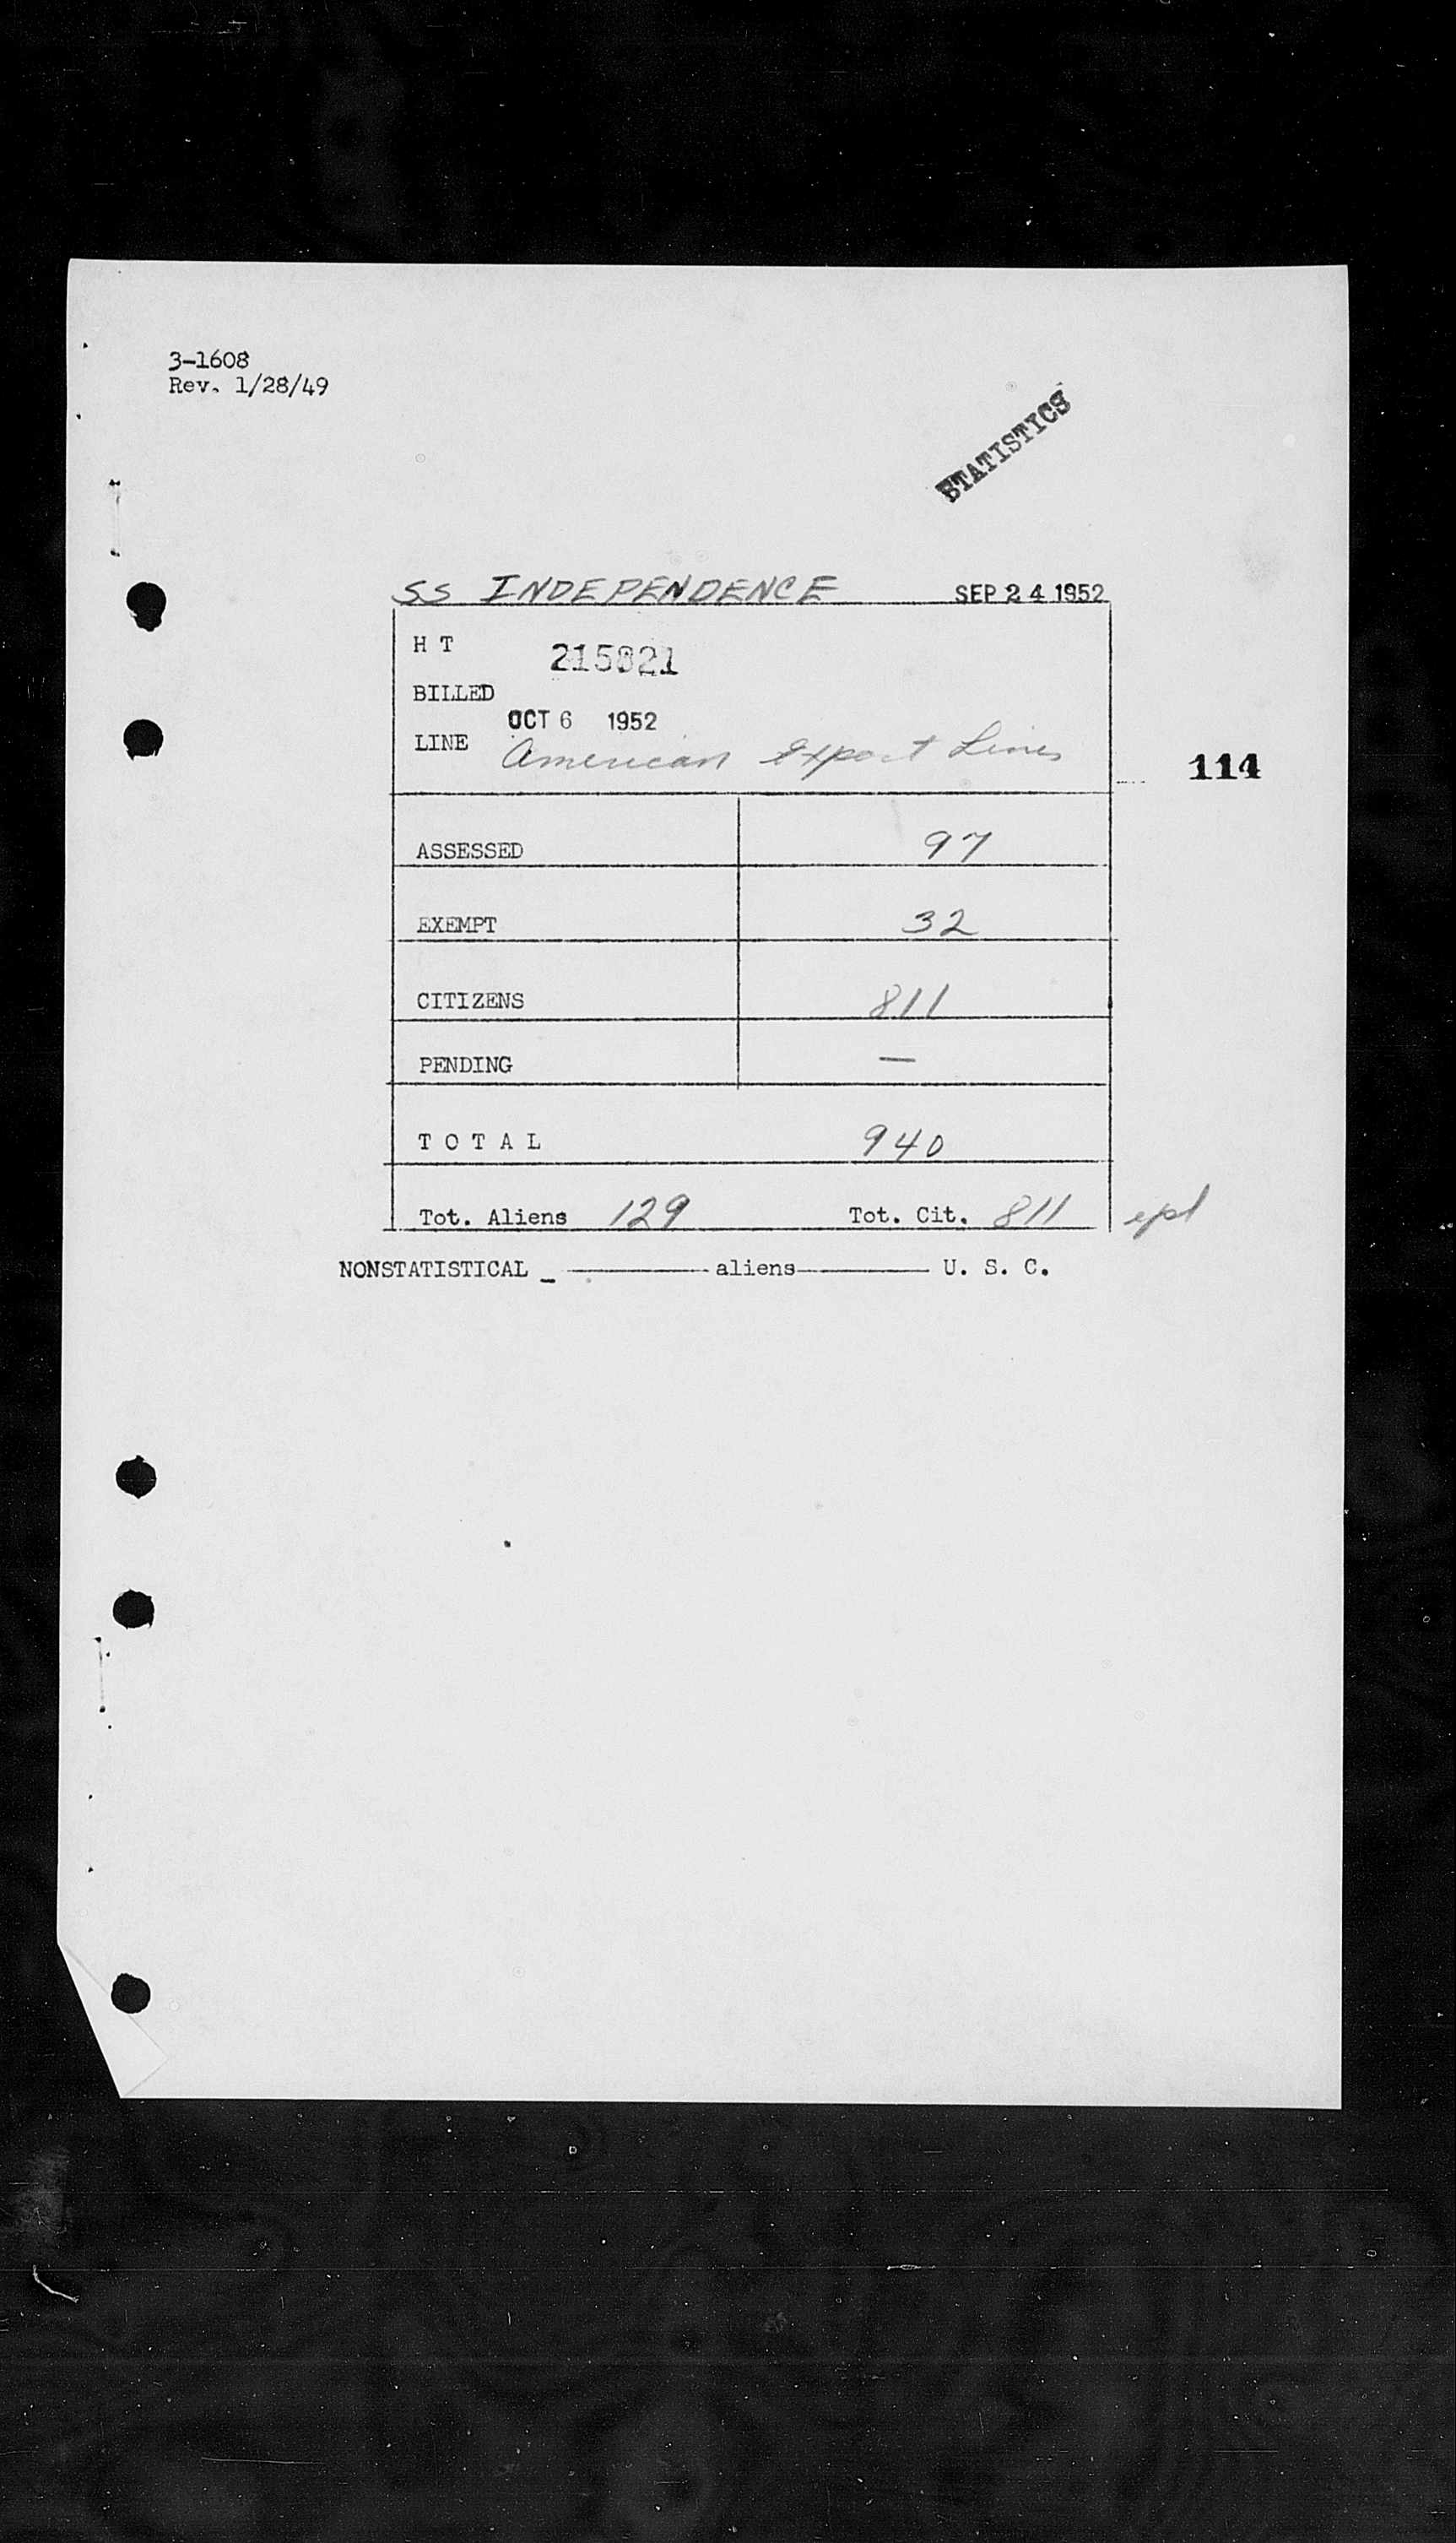 3-1608
Rev. 1/28/49
STATISTICS
SS INDEPENDENCE SEP 24 1952
H T 215821
BILLED
OCT 6 1952
LINE American Export Lines
114
ASSESSED 97
EXEMPT 32
CITIZENS 811
PENDING —
T O T A L 940
Tot. Aliens 129 Tot. Cit. 811
NONSTATISTICAL _ ———— aliens———— U. S. C.